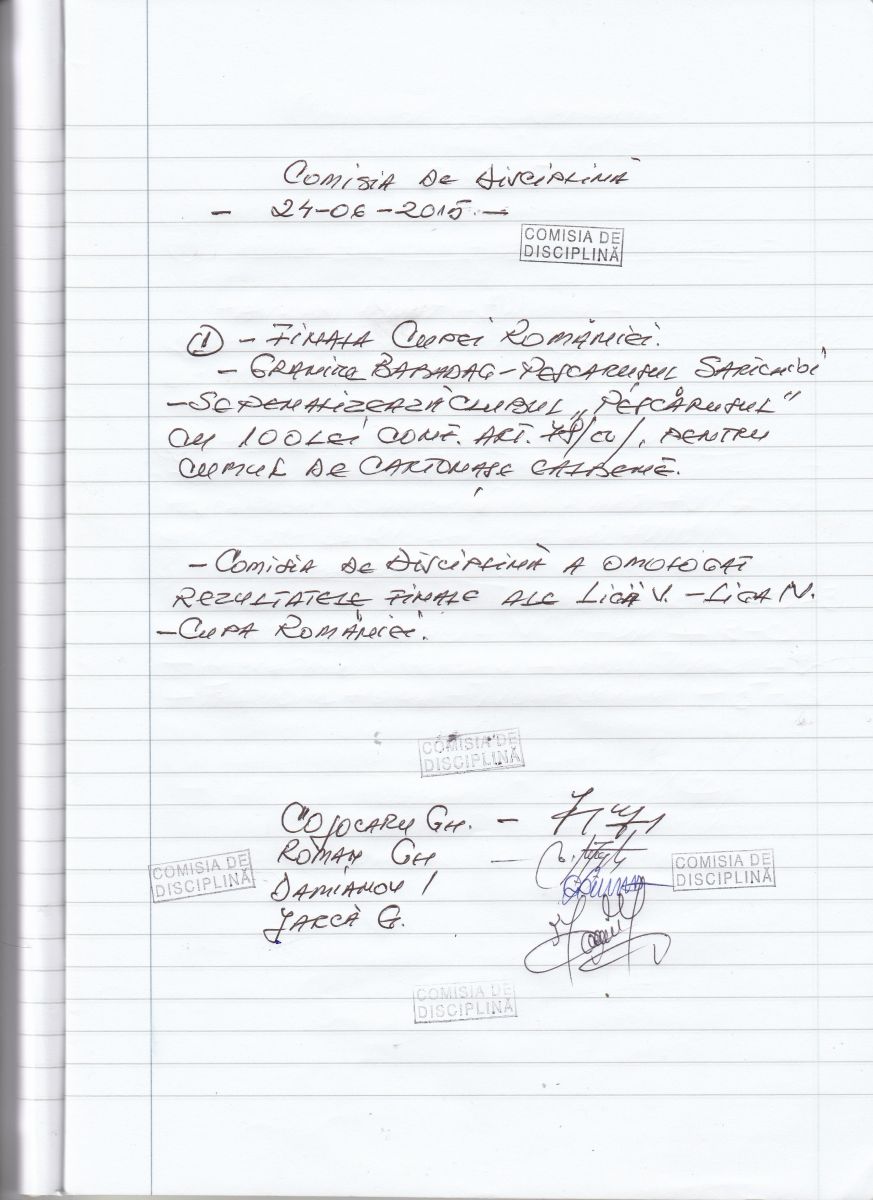 COMISIA DE DISCIPLINĂ
- 24-06-2015 -
COMISIA DE
DISCIPLINĂ
① - FINALA CUPEI ROMÂNIEI.
- GRANITU BABADAG - PESCARUSUL SARICHIOI
- SE PENALIZEAZĂ CLUBUL „PESCĂRUSUL"
CU 100 LEI CONF. ART. PENTRU
CUMUL DE CARTONAȘE GALBENE.
- COMISIA DE DISCIPLINĂ A OMOLOGAT
REZULTATELE FINALE ALE LIGĂ V. - LIGA IV.
- CUPA ROMÂNIEI.
COMISIA DE
DISCIPLINĂ
COJOCARU GH. -
ROMAN GH -
DAMIANOV I
IARCĂ G.
COMISIA DE
DISCIPLINĂ
COMISIA DE
DISCIPLINĂ
COMISIA DE
DISCIPLINĂ